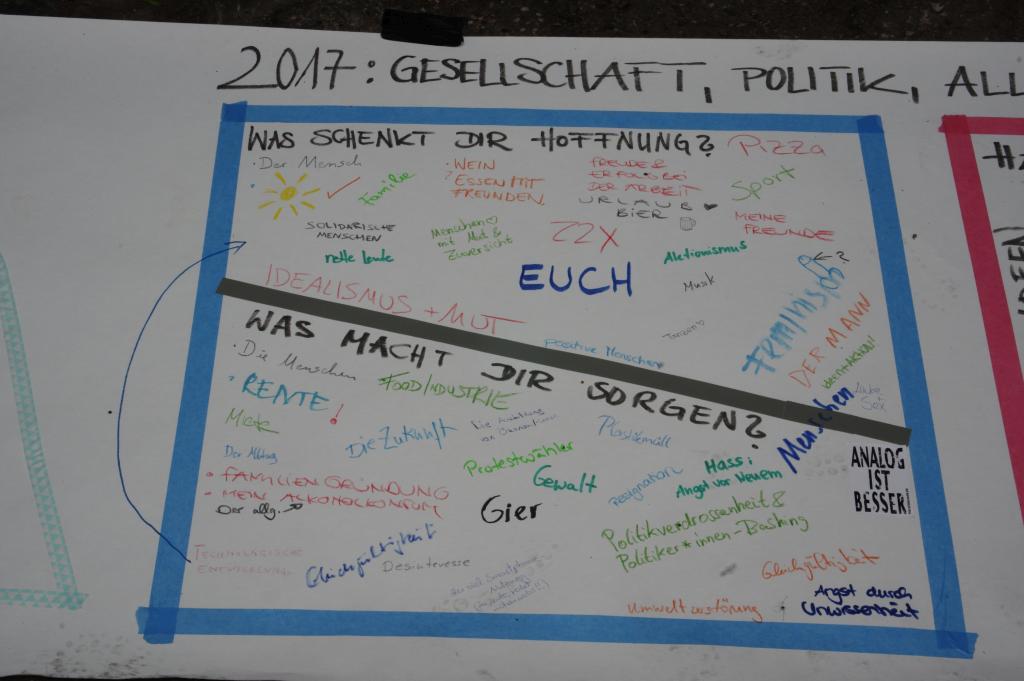 2017: GESELLSCHAFT, POLITIK, ALL
WAS SCHENKT DIR HOFFNUNG?
PIZZA
· Der Mensch
Familie
· WEIN
ESSEN MIT
FREUNDEN
FREUDE &
ERFOLG BEI
DER ARBEIT
URLAUB
BIER
Sport
MEINE
FREUNDE
SOLIDARISCHE
MENSCHEN
nette Leute
Menschen
mit Mut &
Zuversicht
ZZX
Aktionismus
EUCH
Musik
← ?
Feministisch
IDEALISMUS + MUT
Tanzen
positive Menschen
DER MANN
Liebe
Sex
WAS MACHT DIR SORGEN?
· Die Menschen
· RENTE !
FOOD/INDUSTRIE
Miete
Die Zukunft
Plastikmüll
Menschen
Der Alltag
Protestwähler
Gewalt
Resignation
Hass;
Angst vor Neuem
ANALOG
IST
BESSER!
· FAMILIENGRÜNDUNG
· MEIN ALKOHOLKONSUM
Der allg.
Gier
Politikverdrossenheit &
Politiker*innen-Bashing
TECHNOLOGISCHE
ENTWICKLUNG
Gleichgültigkeit
Desinteresse
Gleichgültigkeit
Umweltzerstörung
Angst durch
Unwissenheit